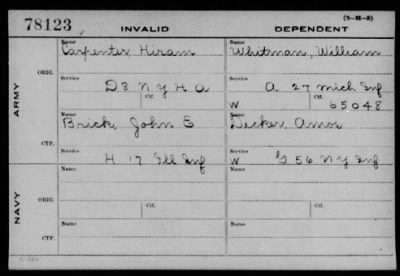 78123 INVALID DEPENDENT (3-H-5)
Name Name
Carpenter, Hiram Whitman, William
ORIG.
Service Service
D 8 N Y H A A 27 Mich Inf
Ctf. Ctf.
W 65048
ARMY
Name Name
Brick, John E Decker, Amos
CTF.
Service Service
H 17 Ill Inf W G 56 N Y Inf
Name Name
ORIG.
Ctf. Ctf.
NAVY
Name Name
CTF.